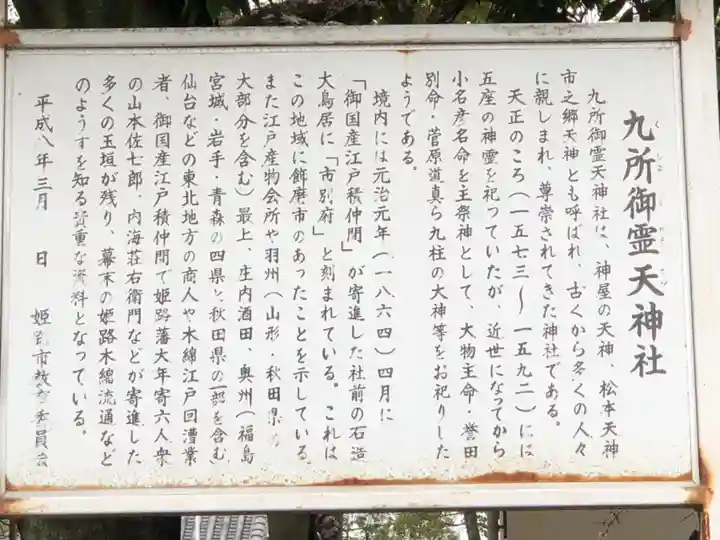 九所御霊天神社
九所御霊天神社は、神屋の天神、松本天神
市之郷天神とも呼ばれ、古くから多くの人々
に親しまれ、尊崇されてきた神社である。
天正のころ(一五七三〜一五九二)には
五座の神霊を祀っていたが、近世になってから
小名彦名命を主祭神として、大物主命・誉田
別命・菅原道真ら九柱の大神等をお祀りした
ようである。
境内には元治元年(一八六四)四月に
「御国産江戸積仲間」が寄進した社前の石造
大鳥居に「市別府」と刻まれている。これは
この地域に飾磨市のあったことを示している
また江戸産物会所や羽州(山形・秋田県の
大部分を含む)最上、庄内酒田、奥州(福島
宮城・岩手・青森の四県と秋田県の一部を含む
仙台などの東北地方の商人や木綿江戸回漕業
者、御国産江戸積仲間で姫路藩大年寄六人衆
の山本佐七郎、内海荘右衛門などが寄進した
多くの玉垣が残り、幕末の姫路木綿流通など
のようすを知る貴重な資料となっている。
平成八年三月 日 姫路市教育委員会